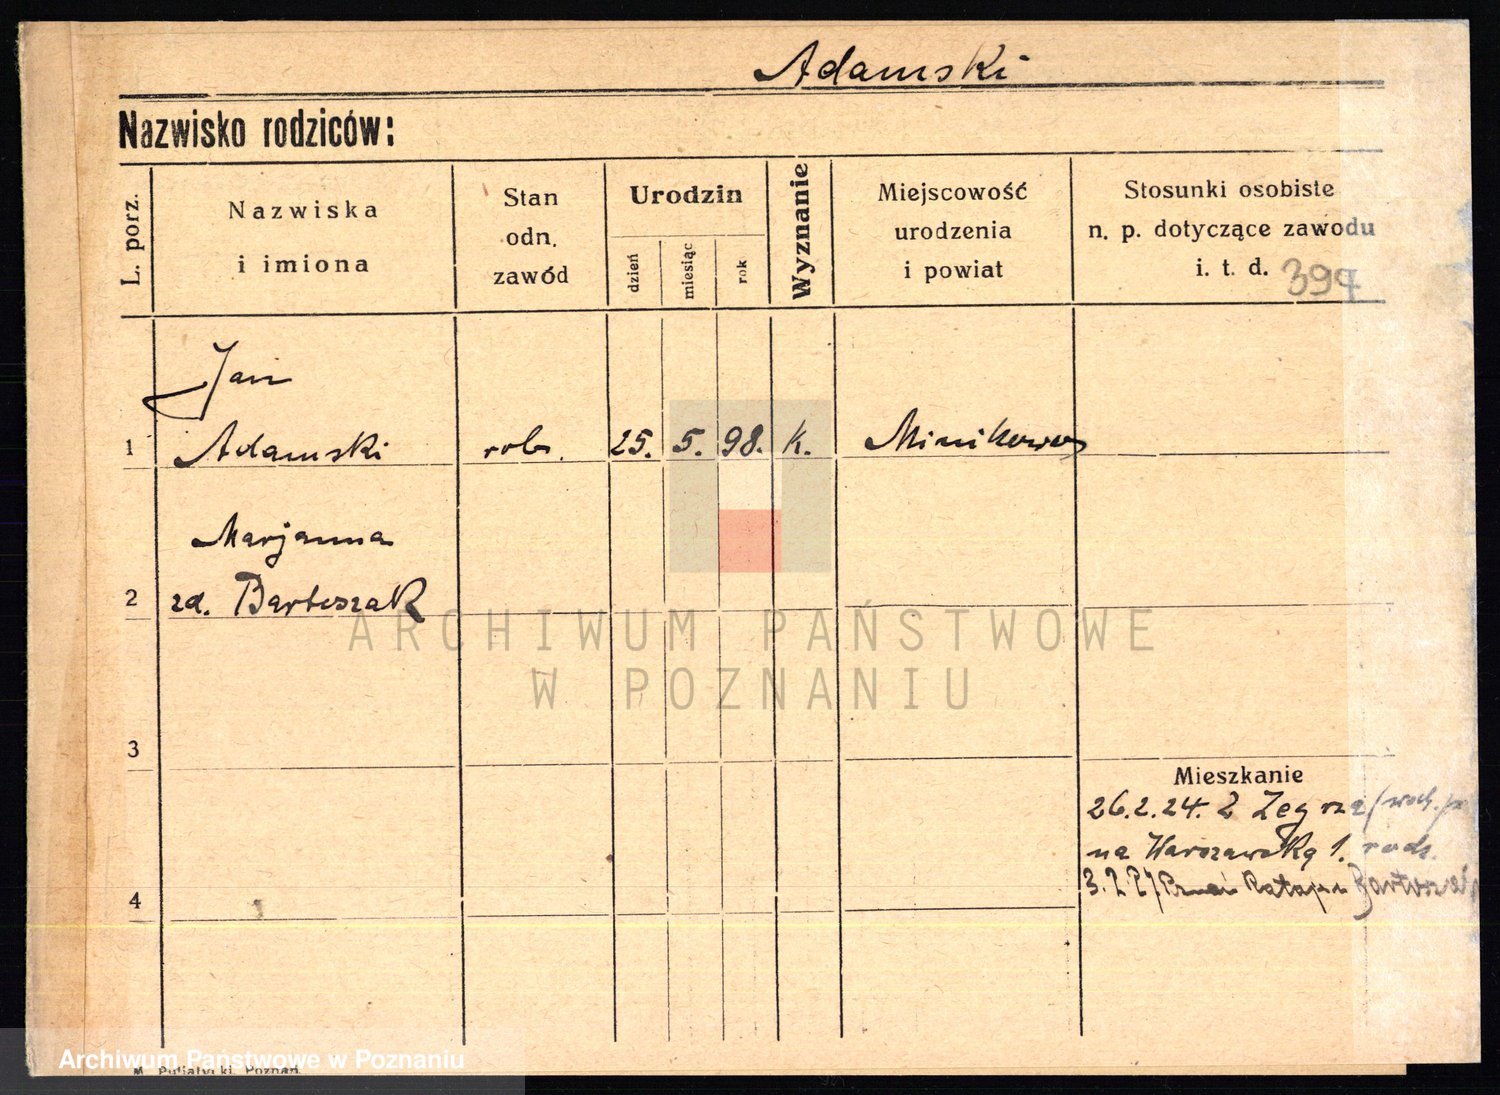 Adamski
Nazwisko rodziców:
L. porz.
Nazwiska
i imiona
Stan
odn.
zawód
Urodzin
dzień
miesiąc
rok
Wyznanie
Miejscowość
urodzenia
i powiat
Stosunki osobiste
n. p. dotyczące zawodu
i. t. d.
Jan
1 Adamski rob. 25. 5. 98. k. Minikowo
Marjanna
2 zd. Bartoszak
3
4
Mieszkanie
26.2.24. z Zegrza
na Warszawską 1.
3.2.27 Rataje
ARCHIWUM PAŃSTWOWE
W POZNANIU
Archiwum Państwowe w Poznaniu